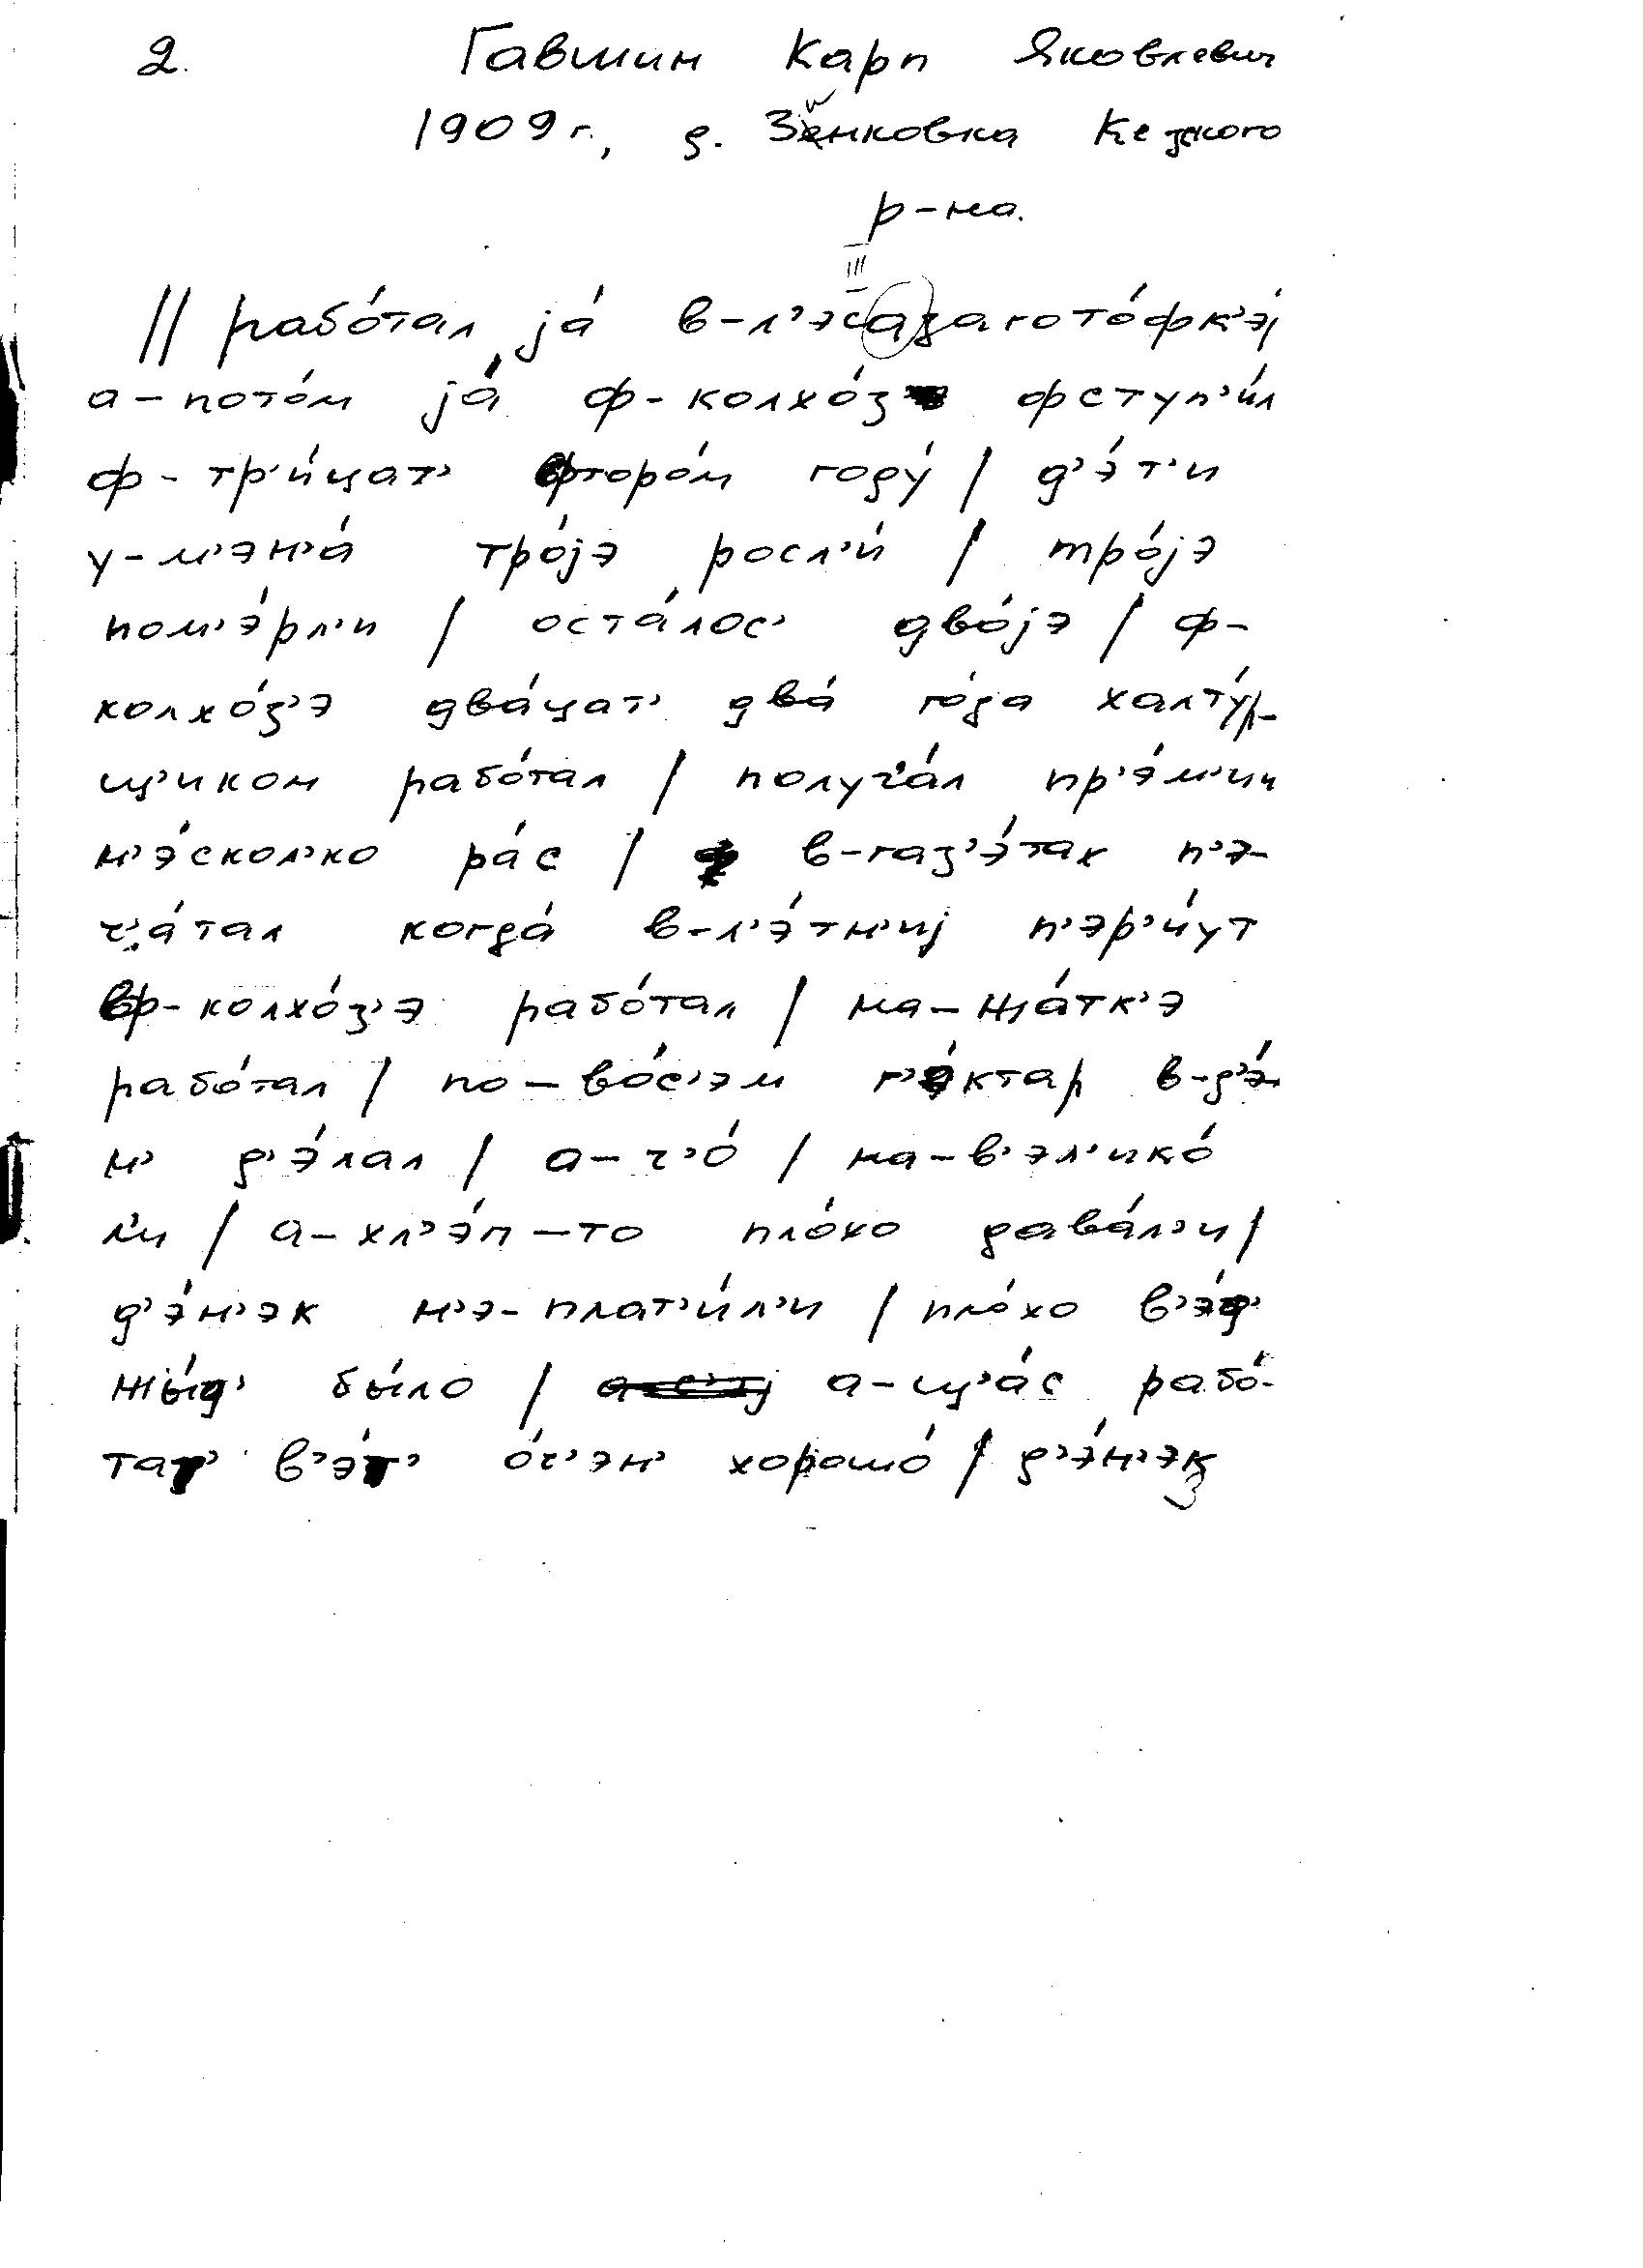 2. Гавшин Карп Яковлевич
1909 г., д. Зинковка Кезского
р-на.
// рабо́тал jа́ в-л'эсазагото́фк'эj
а-пото́м jа́ ф-колхо́з фступ'и́л
ф-тр'и́цат' фторо́м году́ / д'э́т'и
у-м'эн'а́ тро́jэ росл'и́ / тро́jэ
пом'э́рл'и / оста́лос' дво́jэ / ф-
колхо́з'э два́цат' два́ го́да халту́р-
щ'иком рабо́тал / получ'а́л пр'э́м'ии
н'э́скол'ко ра́с / в-газ'э́тах п'э-
ч'а́тал когда́ в-л'э́тн'иj п'эр'и́ут
ф-колхо́з'э рабо́тал / на-жа́тк'э
рабо́тал / по-во́с'эм г'э́ктар в-д'э́-
н' д'э́лал / а-ч'о́ / на-в'эл'ико́
л'и / а-хл'э́п-то пло́хо дава́л'и /
д'э́н'эк н'э-плат'и́л'и / пло́хо в'э́д'
жы́д' бы́ло / а-щ'а́с рабо́-
тат' в'э́т' о́ч'эн' хорошо́ / д'э́н'эк